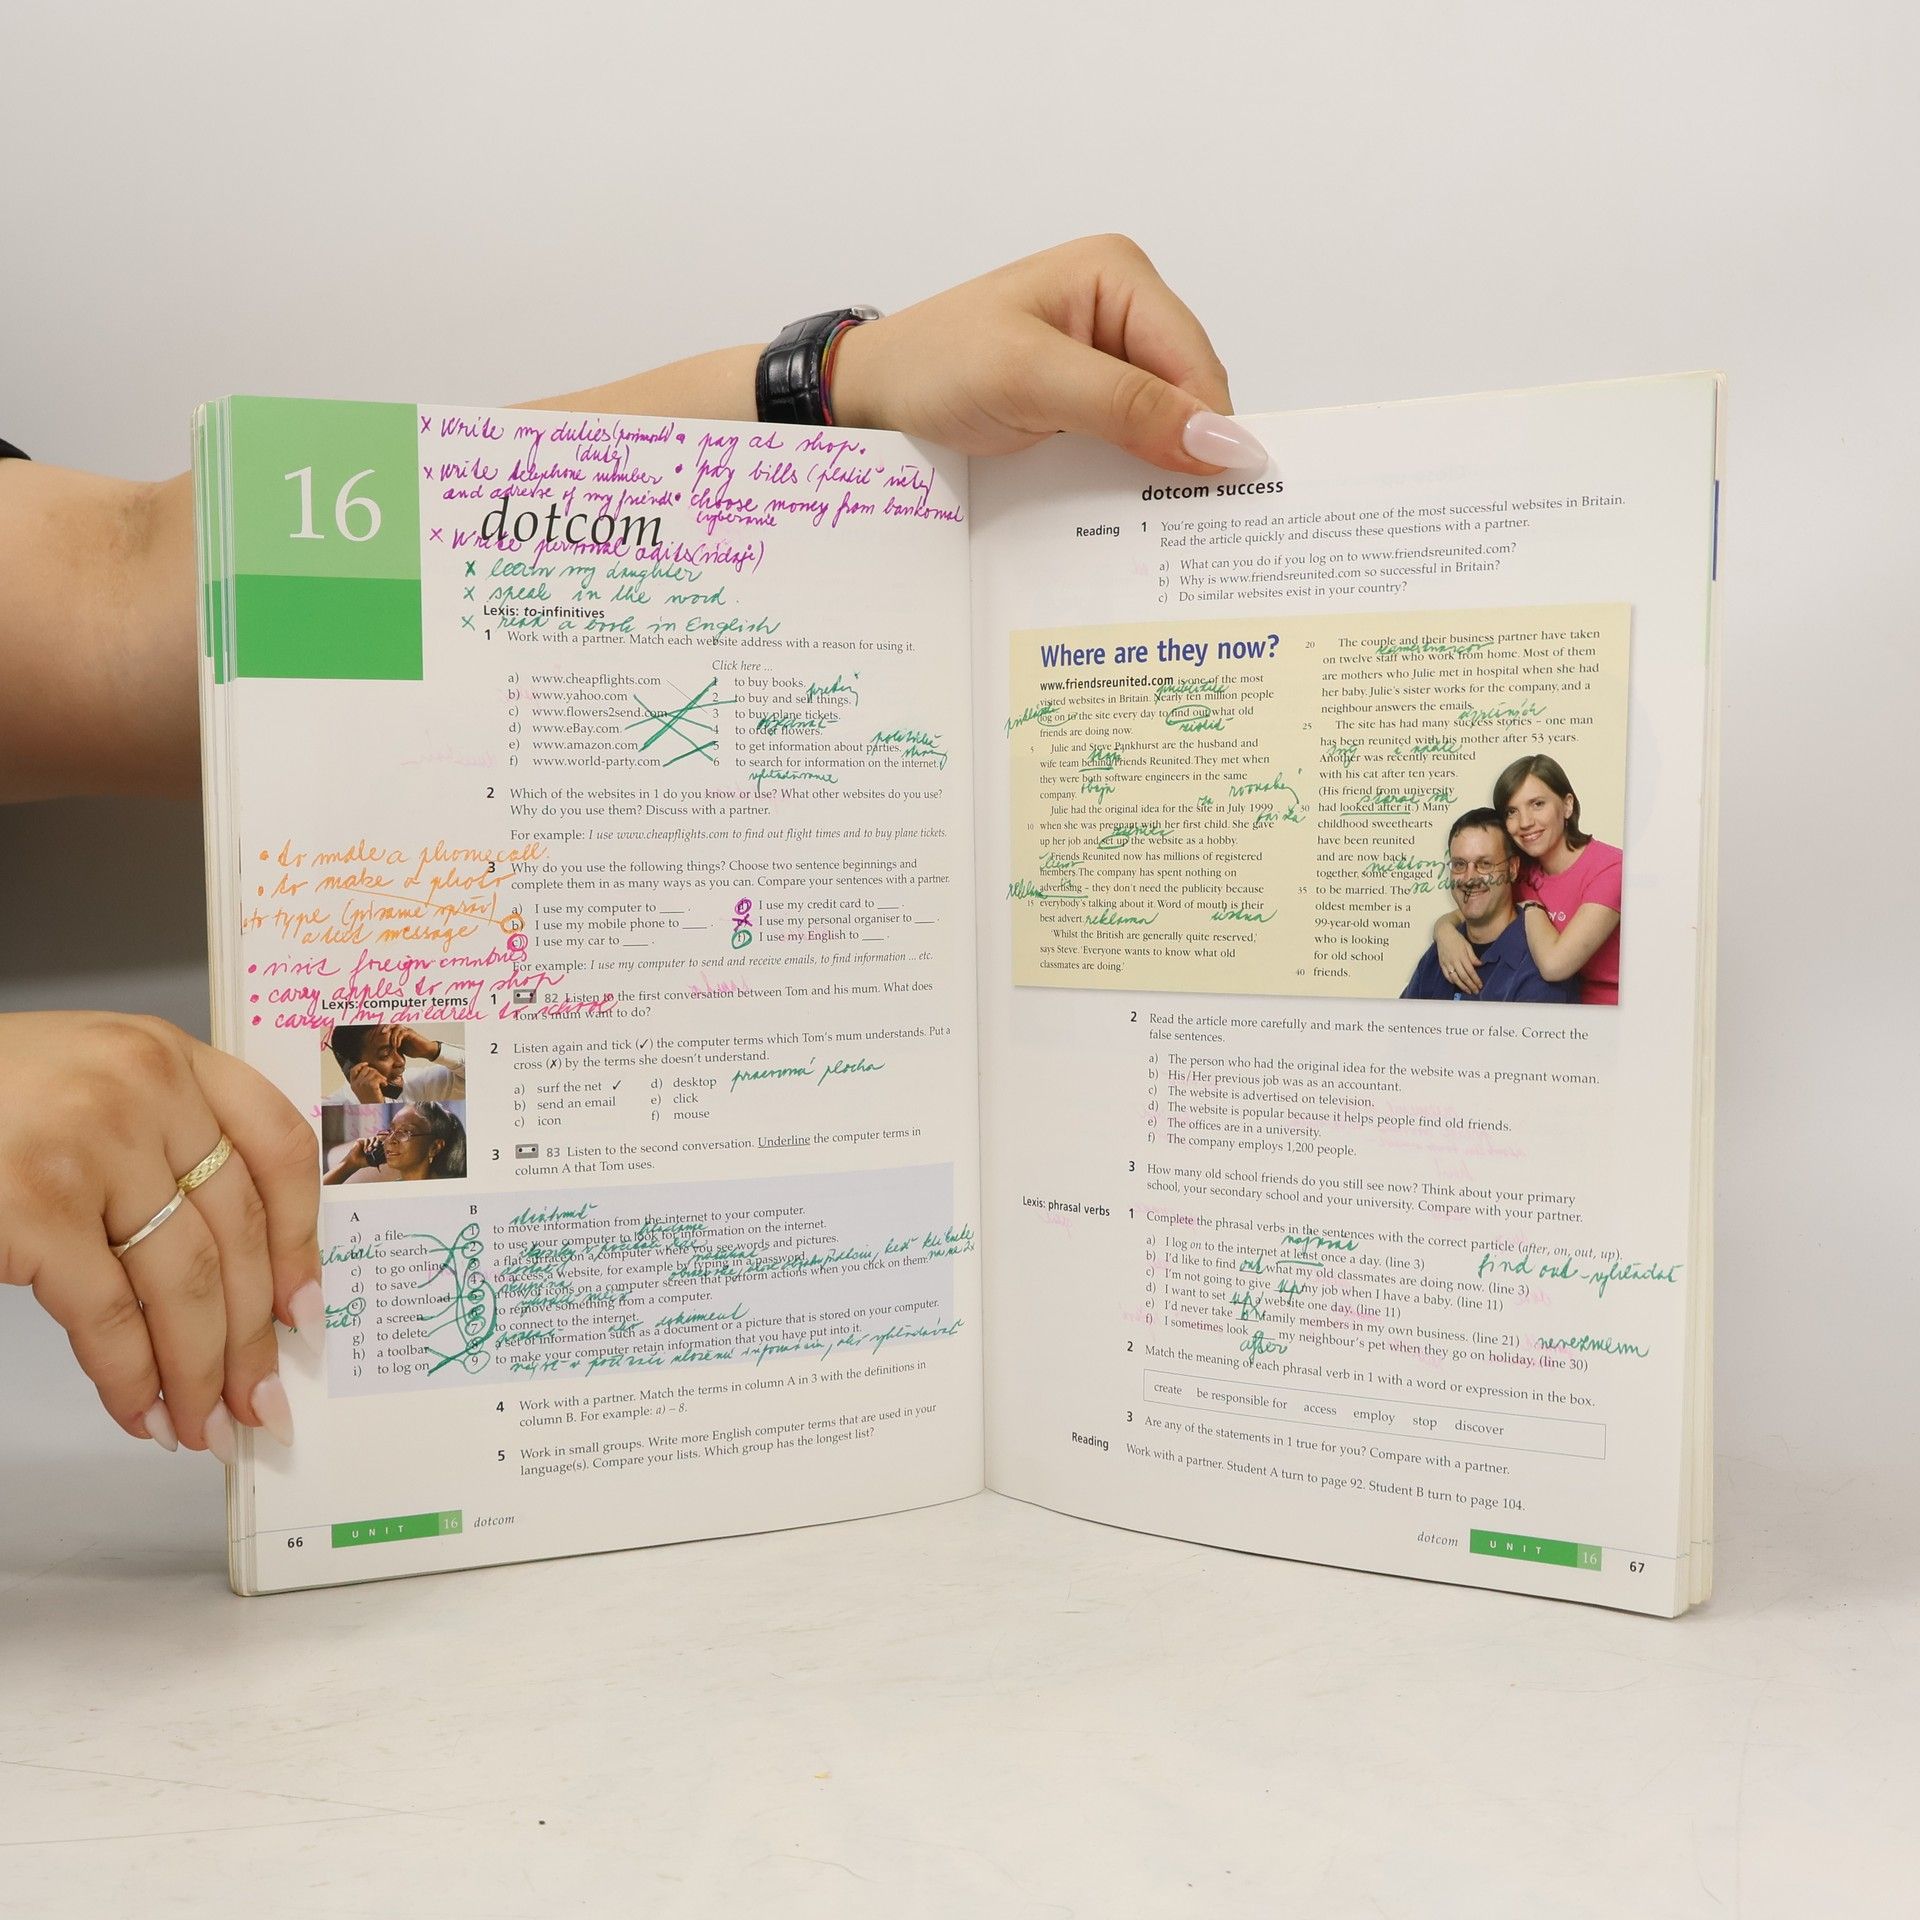 16
x Write my duties
• pay at shop.
(duty)
x write telephone number
• pay bills (platiť účty)
and adresse of my friends
• choose money from bankomat
dotcom
x Write personal
x learn my daughter
x speak in the word.
Lexis: to-infinitives
x read a book in English
1 Work with a partner. Match each website address with a reason for using it.
Click here ...
a) www.cheapflights.com 1 to buy books.
b) www.yahoo.com 2 to buy and sell things.
c) www.flowers2send.com 3 to buy plane tickets.
d) www.eBay.com 4 to order flowers.
e) www.amazon.com 5 to get information about parties.
f) www.world-party.com 6 to search for information on the internet.
2 Which of the websites in 1 do you know or use? What other websites do you use?
Why do you use them? Discuss with a partner.
For example: I use www.cheapflights.com to find out flight times and to buy plane tickets.
• to make a phonecall.
• to make a photo
3 Why do you use the following things? Choose two sentence beginnings and
complete them in as many ways as you can. Compare your sentences with a partner.
to type
a text message
a) I use my computer to ____ . d) I use my credit card to ____ .
b) I use my mobile phone to ____ . e) I use my personal organiser to ____ .
c) I use my car to ____ . f) I use my English to ____ .
• visit foreign countries
For example: I use my computer to send and receive emails, to find information ... etc.
• carry apples to my shop
• carry my children to school
Lexis: computer terms
1 82 Listen to the first conversation between Tom and his mum. What does
Tom's mum want to do?
2 Listen again and tick (✓) the computer terms which Tom's mum understands. Put a
cross (✗) by the terms she doesn't understand.
a) surf the net ✓ d) desktop pracovná plocha
b) send an email e) click
c) icon f) mouse
3 83 Listen to the second conversation. Underline the computer terms in
column A that Tom uses.
A B
a) a file 1 to move information from the internet to your computer.
b) to search 2 to use your computer to look for information on the internet.
c) to go online 3 a flat surface on a computer where you see words and pictures.
d) to save 4 to access a website, for example by typing in a password.
e) to download 5 a row of icons on a computer screen that perform actions when you click on them.
f) a screen 6 to remove something from a computer.
g) to delete 7 to connect to the internet.
h) a toolbar 8 a set of information such as a document or a picture that is stored on your computer.
i) to log on 9 to make your computer retain information that you have put into it.
4 Work with a partner. Match the terms in column A in 3 with the definitions in
column B. For example: a) – 8.
5 Work in small groups. Write more English computer terms that are used in your
language(s). Compare your lists. Which group has the longest list?
66 UNIT 16 dotcom
dotcom success
Reading 1 You're going to read an article about one of the most successful websites in Britain.
Read the article quickly and discuss these questions with a partner.
a) What can you do if you log on to www.friendsreunited.com?
b) Why is www.friendsreunited.com so successful in Britain?
c) Do similar websites exist in your country?
Where are they now?
www.friendsreunited.com is one of the most
visited websites in Britain. Nearly ten million people
log on to the site every day to find out what old
friends are doing now.
5 Julie and Steve Pankhurst are the husband and
wife team behind Friends Reunited. They met when
they were both software engineers in the same
company.
Julie had the original idea for the site in July 1999
10 when she was pregnant with her first child. She gave
up her job and set up the website as a hobby.
Friends Reunited now has millions of registered
members. The company has spent nothing on
advertising – they don't need the publicity because
15 everybody's talking about it. Word of mouth is their
best advert. reklama ústna
'Whilst the British are generally quite reserved,'
says Steve. 'Everyone wants to know what old
classmates are doing.'
20 The couple and their business partner have taken
on twelve staff who work from home. Most of them
are mothers who Julie met in hospital when she had
her baby. Julie's sister works for the company, and a
neighbour answers the emails.
25 The site has had many success stories – one man
has been reunited with his mother after 53 years.
Another was recently reunited
with his cat after ten years.
(His friend from university
30 had looked after it.) Many
childhood sweethearts
have been reunited
and are now back
together, some engaged
35 to be married. The
oldest member is a
99-year-old woman
who is looking
for old school
40 friends.
2 Read the article more carefully and mark the sentences true or false. Correct the
false sentences.
a) The person who had the original idea for the website was a pregnant woman.
b) His/Her previous job was as an accountant.
c) The website is advertised on television.
d) The website is popular because it helps people find old friends.
e) The offices are in a university.
f) The company employs 1,200 people.
3 How many old school friends do you still see now? Think about your primary
school, your secondary school and your university. Compare with your partner.
Lexis: phrasal verbs 1 Complete the phrasal verbs in the sentences with the correct particle (after, on, out, up).
a) I log on to the internet at least once a day. (line 3)
b) I'd like to find out what my old classmates are doing now. (line 3)
find out - vyhľadať
c) I'm not going to give up my job when I have a baby. (line 11)
d) I want to set up a website one day. (line 11)
e) I'd never take on family members in my own business. (line 21) nevezmem
f) I sometimes look after my neighbour's pet when they go on holiday. (line 30)
2 Match the meaning of each phrasal verb in 1 with a word or expression in the box.
create be responsible for access employ stop discover
3 Are any of the statements in 1 true for you? Compare with a partner.
Reading Work with a partner. Student A turn to page 92. Student B turn to page 104.
dotcom UNIT 16 67